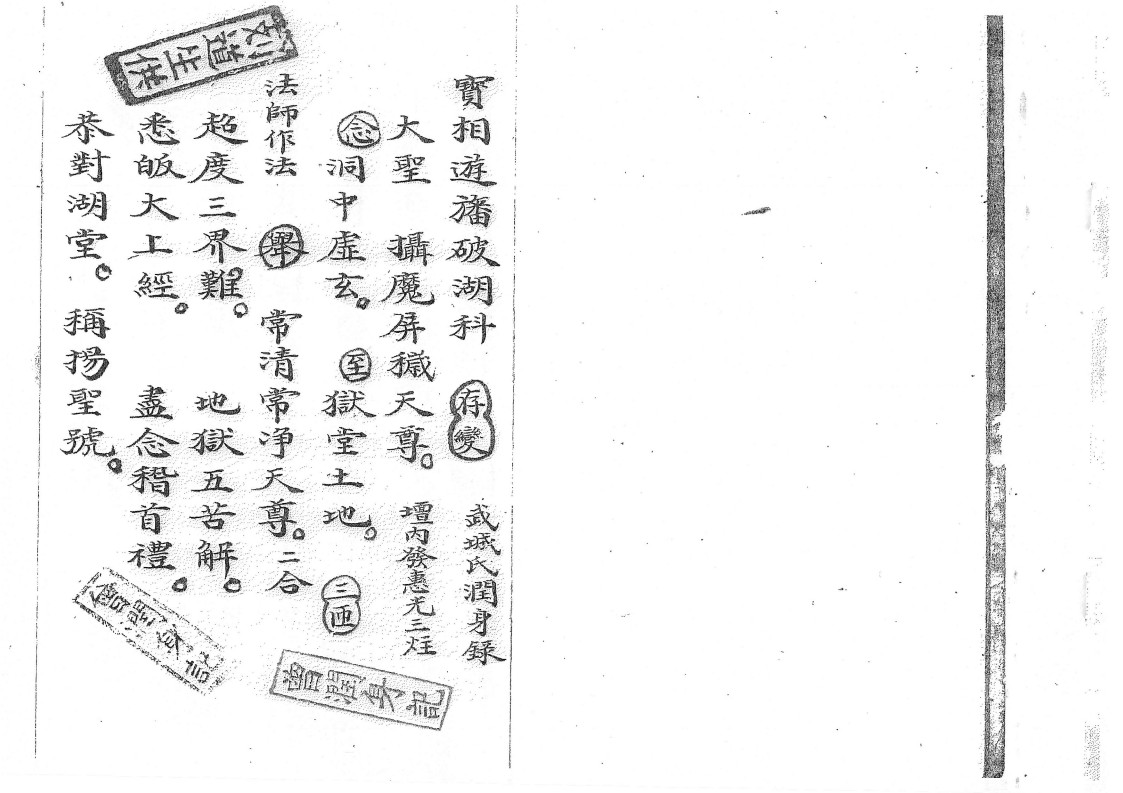 寶相遊旛破湖科 存變 武城氏潤身錄
大聖 攝魔屏穢天尊。 壇內發惠光三炷
念洞中虛玄。 至獄堂土地。 三匝
法師作法 舉 常清常净天尊。二合
超度三界難。 地獄五苦解。
悉皈大上經。 盡念稽首禮。
恭對湖堂。 稱揚聖號。
劉道生供
曾潤身記
曾潤身記